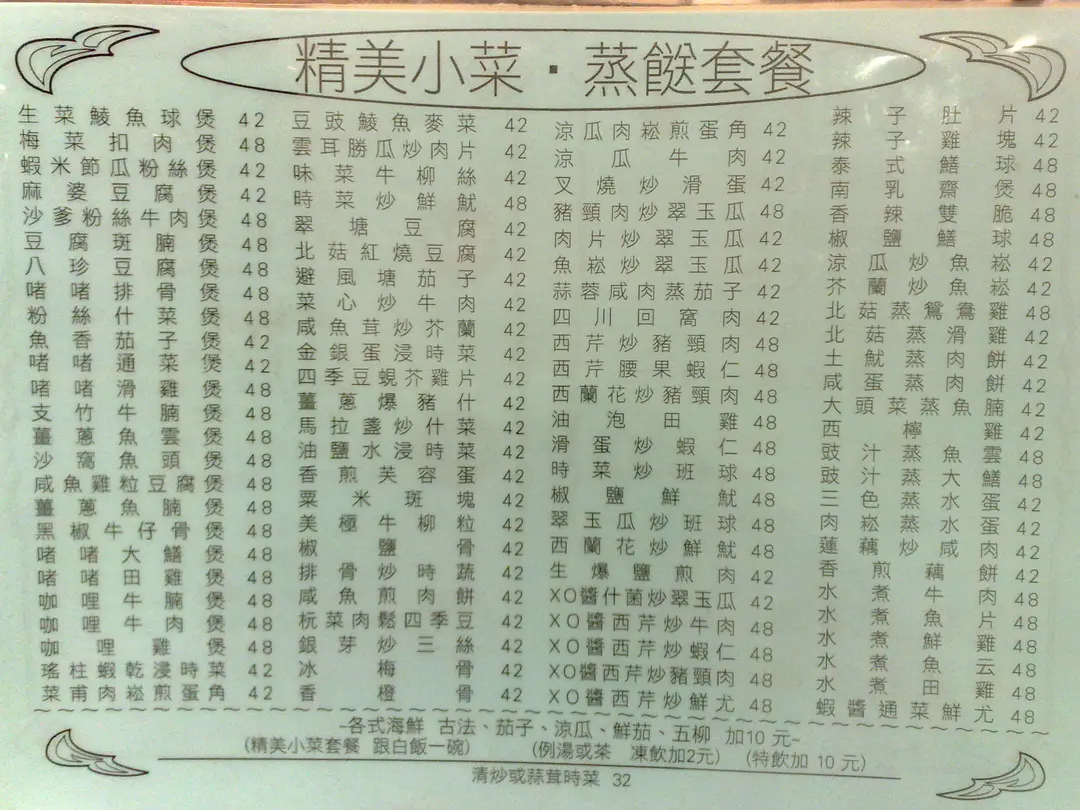 精美小菜·蒸餸套餐
生菜鯪魚球煲 42
梅菜扣肉煲 48
蝦米節瓜粉絲煲 42
麻婆豆腐煲 42
沙爹粉絲牛肉煲 48
豆腐斑腩煲 48
八珍豆腐煲 48
啫啫排骨煲 48
粉絲什菜煲 48
魚香茄子煲 42
啫啫通菜煲 42
啫啫滑雞煲 48
支竹牛腩煲 48
薑蔥魚雲煲 48
沙窩魚頭煲 48
咸魚雞粒豆腐煲 48
薑蔥魚腩煲 48
黑椒牛仔骨煲 48
啫啫大鱔煲 48
啫啫田雞煲 48
咖哩牛腩煲 48
咖哩牛肉煲 48
咖哩雞煲 48
瑤柱蝦乾浸時菜 42
菜甫肉崧煎蛋角 42
豆豉鯪魚麥菜 42
雲耳勝瓜炒肉片 42
味菜牛柳絲 42
時菜炒鮮魷 48
翠塘豆腐 42
北菇紅燒豆腐 42
避風塘茄子 42
菜心炒牛肉 42
咸魚茸炒芥蘭 42
金銀蛋浸時菜 42
四季豆蜆芥雞片 42
薑蔥爆豬什 42
馬拉盞炒什菜 42
油鹽水浸時菜 42
香煎芙容蛋 42
粟米斑塊 42
美極牛柳粒 42
椒鹽骨 42
排骨炒時蔬 42
咸魚煎肉餅 42
杬菜肉鬆四季豆 42
銀芽炒三絲 42
冰梅骨 42
香橙骨 42
涼瓜肉崧煎蛋角 42
涼瓜牛肉 42
叉燒炒滑蛋 42
豬頸肉炒翠玉瓜 48
肉片炒翠玉瓜 42
魚崧炒翠玉瓜 42
蒜蓉咸肉蒸茄子 42
四川回窩肉 42
西芹炒豬頸肉 48
西芹腰果蝦仁 48
西蘭花炒豬頸肉 48
油泡田雞 48
滑蛋炒蝦仁 48
時菜炒班球 48
椒鹽鮮魷 48
翠玉瓜炒班球 48
西蘭花炒鮮魷 48
生爆鹽煎肉 42
XO醬什菌炒翠玉瓜 42
XO醬西芹炒牛肉 48
XO醬西芹炒蝦仁 48
XO醬西芹炒豬頸肉 48
XO醬西芹炒鮮尤 48
辣子肚片 42
辣子雞塊 42
泰式鱔球 48
南乳齋煲 48
香辣雙脆 48
椒鹽鱔球 48
涼瓜炒魚崧 42
芥蘭炒魚崧 42
北菇蒸鴛鴦雞 48
北菇蒸滑雞 42
土魷蒸肉餅 42
咸蛋蒸肉餅 42
大頭菜蒸魚腩 42
西檸雞 42
豉汁蒸魚雲 48
豉汁蒸大鱔 48
三色蒸水蛋 42
肉崧蒸水蛋 42
蓮藕炒咸肉 42
香煎藕餅 42
水煮牛肉 48
水煮魚片 48
水煮鮮雞 48
水煮魚云 48
水煮田雞 48
蝦醬通菜鮮尤 48
~各式海鮮 古法、茄子、涼瓜、鮮茄、五柳 加10 元~
(精美小菜套餐 跟白飯一碗) (例湯或茶 凍飲加2元) (特飲加 10 元)
清炒或蒜茸時菜 32